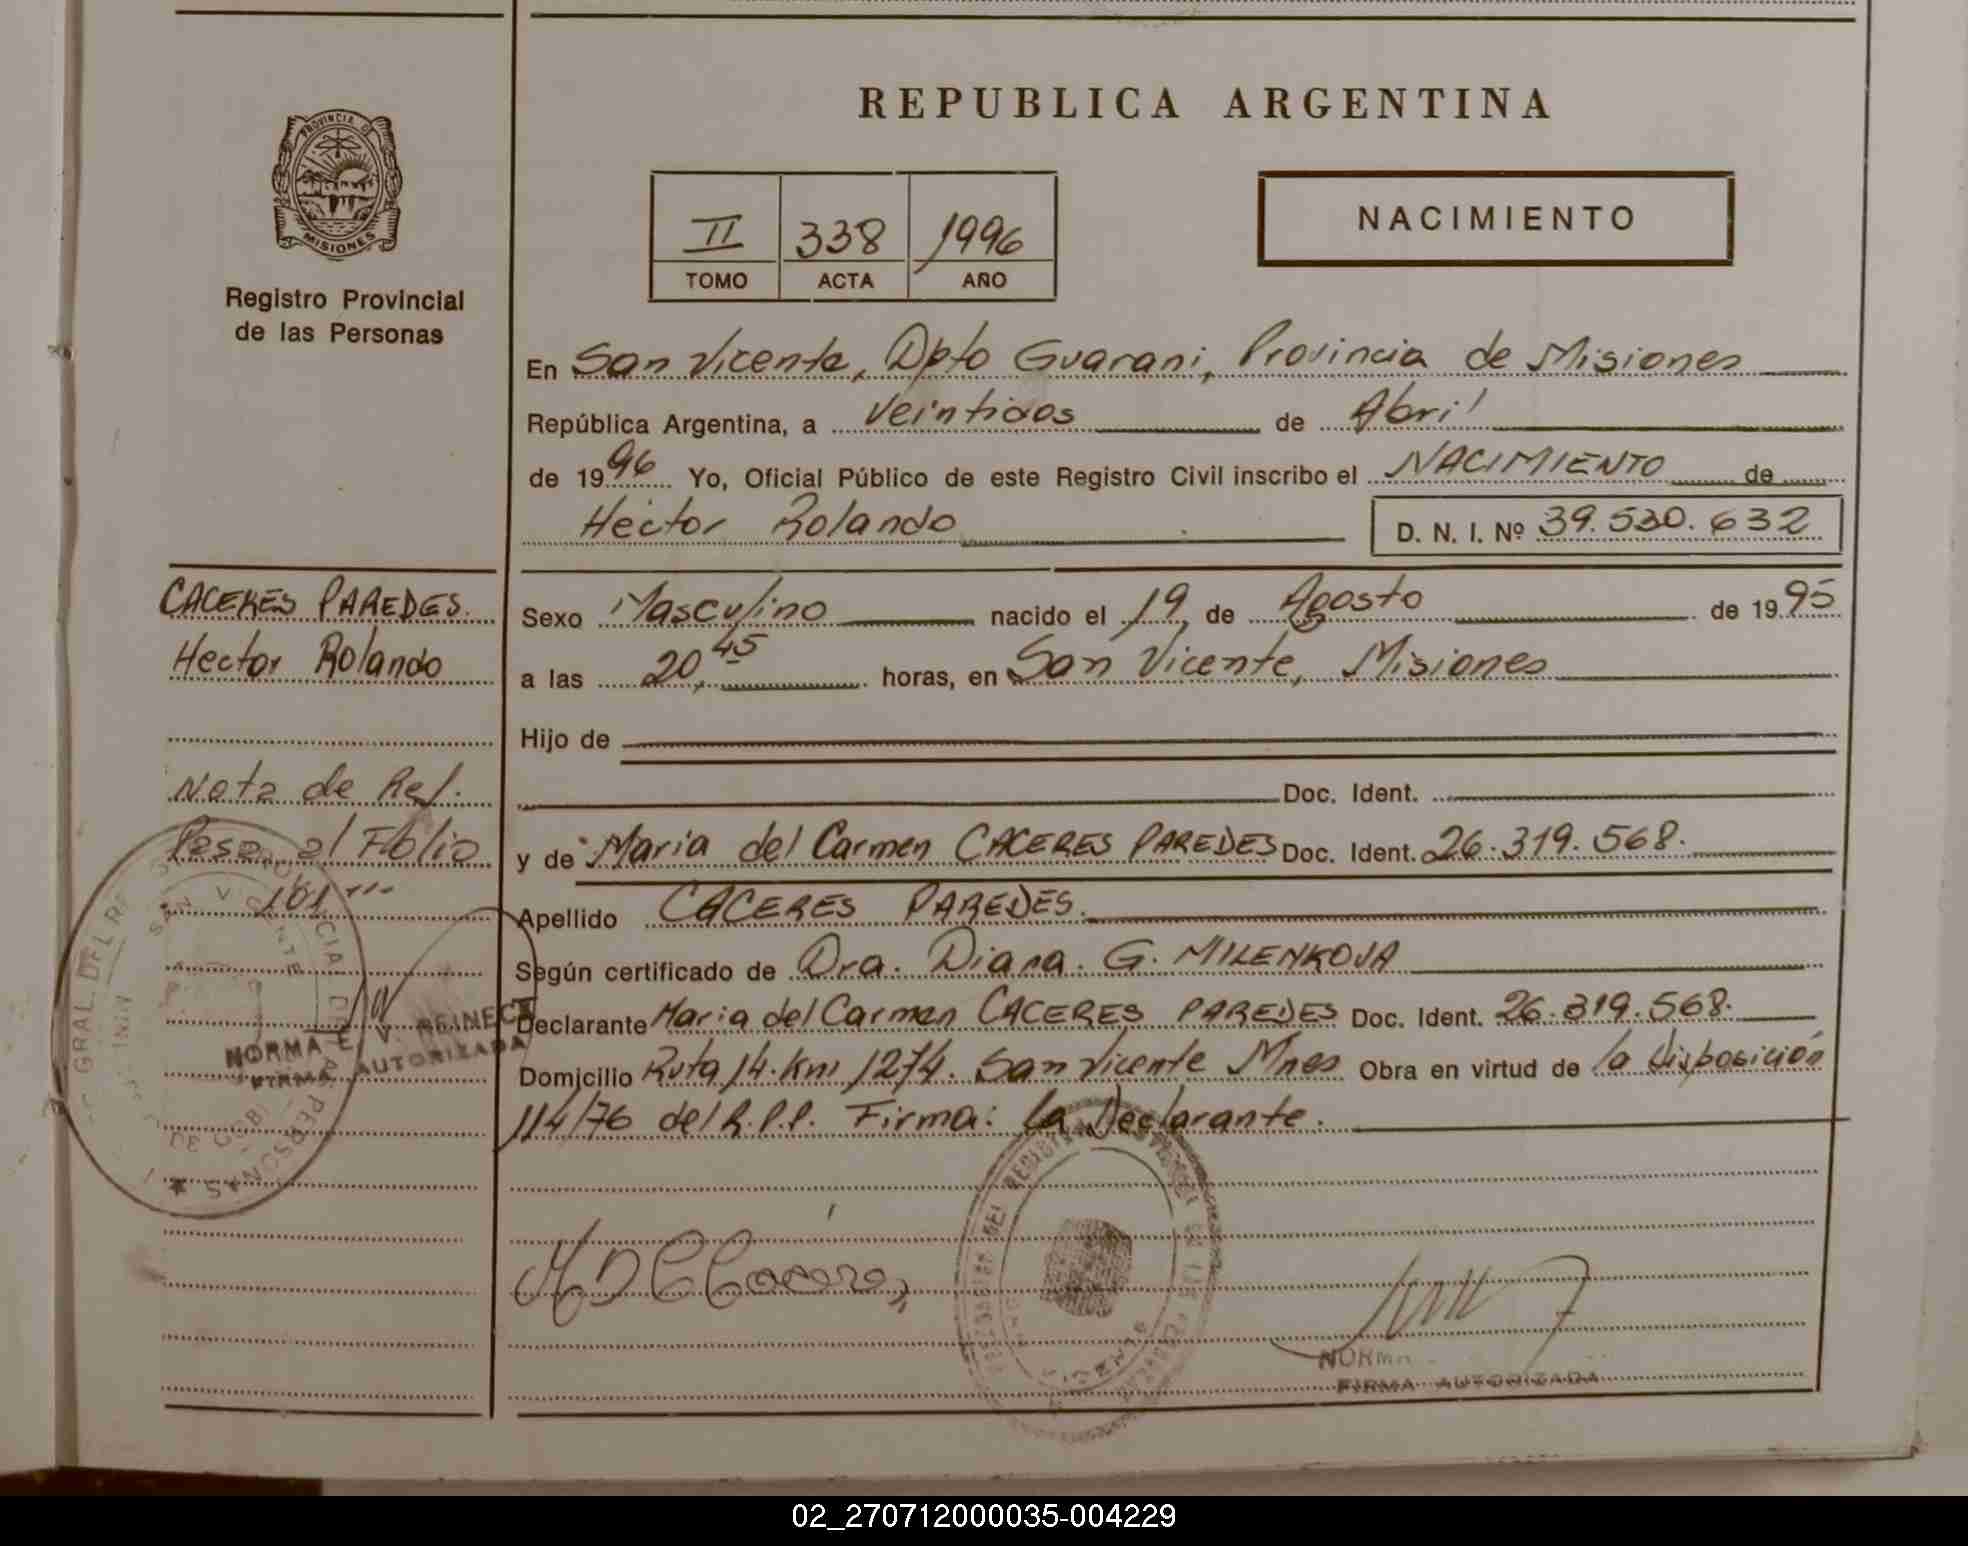 REPUBLICA ARGENTINA
PROVINCIA DE
MISIONES
Registro Provincial
de las Personas
II 338 1996
TOMO ACTA AÑO
NACIMIENTO
En San Vicente, Dpto Guarani, Provincia de Misiones
República Argentina, a Veintidos de Abril
de 1996 Yo, Oficial Público de este Registro Civil inscribo el NACIMIENTO de
Hector Rolando D. N. I. Nº 39.530.632
CACERES PAREDES.
Hector Rolando
Nota de Ref.
Pasa al Folio
101
GRAL. DEL RE
SAN VICENTE
PERSONAS
NORMA E. V. REINECK
FIRMA AUTORIZADA
Sexo Masculino nacido el 19 de Agosto de 1995
a las 20,45 horas, en San Vicente, Misiones
Hijo de
Doc. Ident.
y de Maria del Carmen CACERES PAREDES Doc. Ident. 26.319.568.
Apellido CACERES PAREDES.
Según certificado de Dra. Diana. G. MILENKOVA
Declarante Maria del Carmen CACERES PAREDES Doc. Ident. 26.319.568.
Domicilio Ruta 14. Km 1274. San Vicente Mnes Obra en virtud de la Disposición
114/76 del R.P.P. Firma: la Declarante.
NORMA
FIRMA AUTORIZADA
02_270712000035-004229